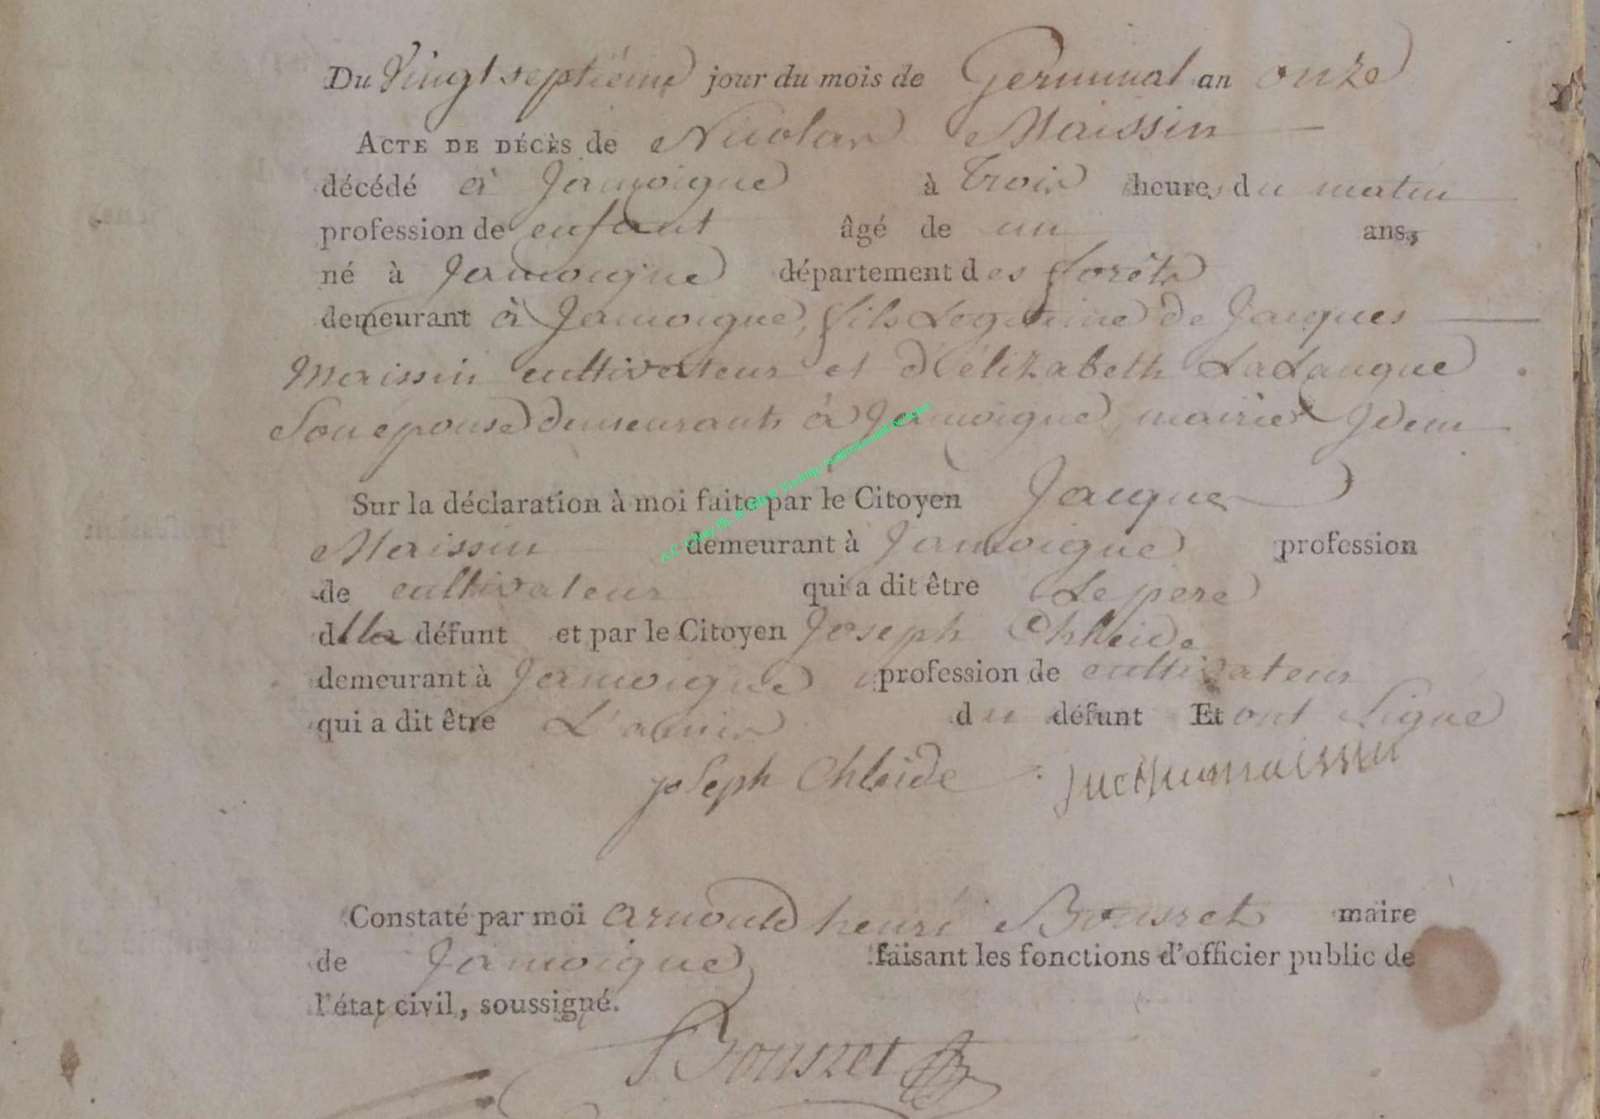 Du Vingt septième jour du mois de Germinal an onze
ACTE DE DÉCÈS de Nicolas Maissin
décédé à Jamoigne à trois heures du matin
profession de enfant âgé de un ans,
né à Jamoigne département des forêts
demeurant à Jamoigne, fils Legitime de Jacques
Maissin cultivateur et d'élizabeth LaLangue
Son épouse demeurants à Jamoigne mairie Idem
Sur la déclaration à moi faite par le Citoyen Jacques
Maissin demeurant à Jamoigne profession
de cultivateur qui a dit être Le pere
du défunt et par le Citoyen Joseph Chleide
demeurant à Jamoigne profession de cultivateur
qui a dit être L'amis du défunt Et ont Signé
joseph Chleide maissin
Constaté par moi arnould henri Bousret maire
de Jamoigne faisant les fonctions d'officier public de
l'état civil, soussigné.
Bousret